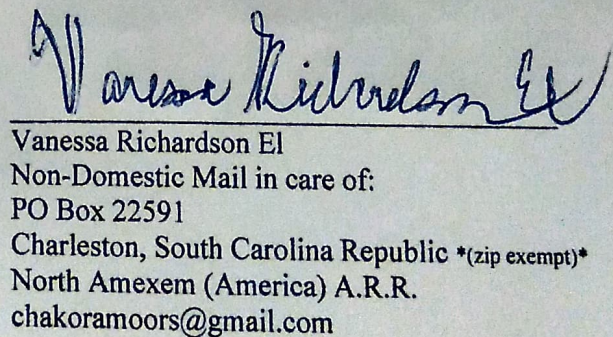 Vanessa Richardson El
Vanessa Richardson El
Non-Domestic Mail in care of:
PO Box 22591
Charleston, South Carolina Republic *(zip exempt)*
North Amexem (America) A.R.R.
chakoramoors@gmail.com